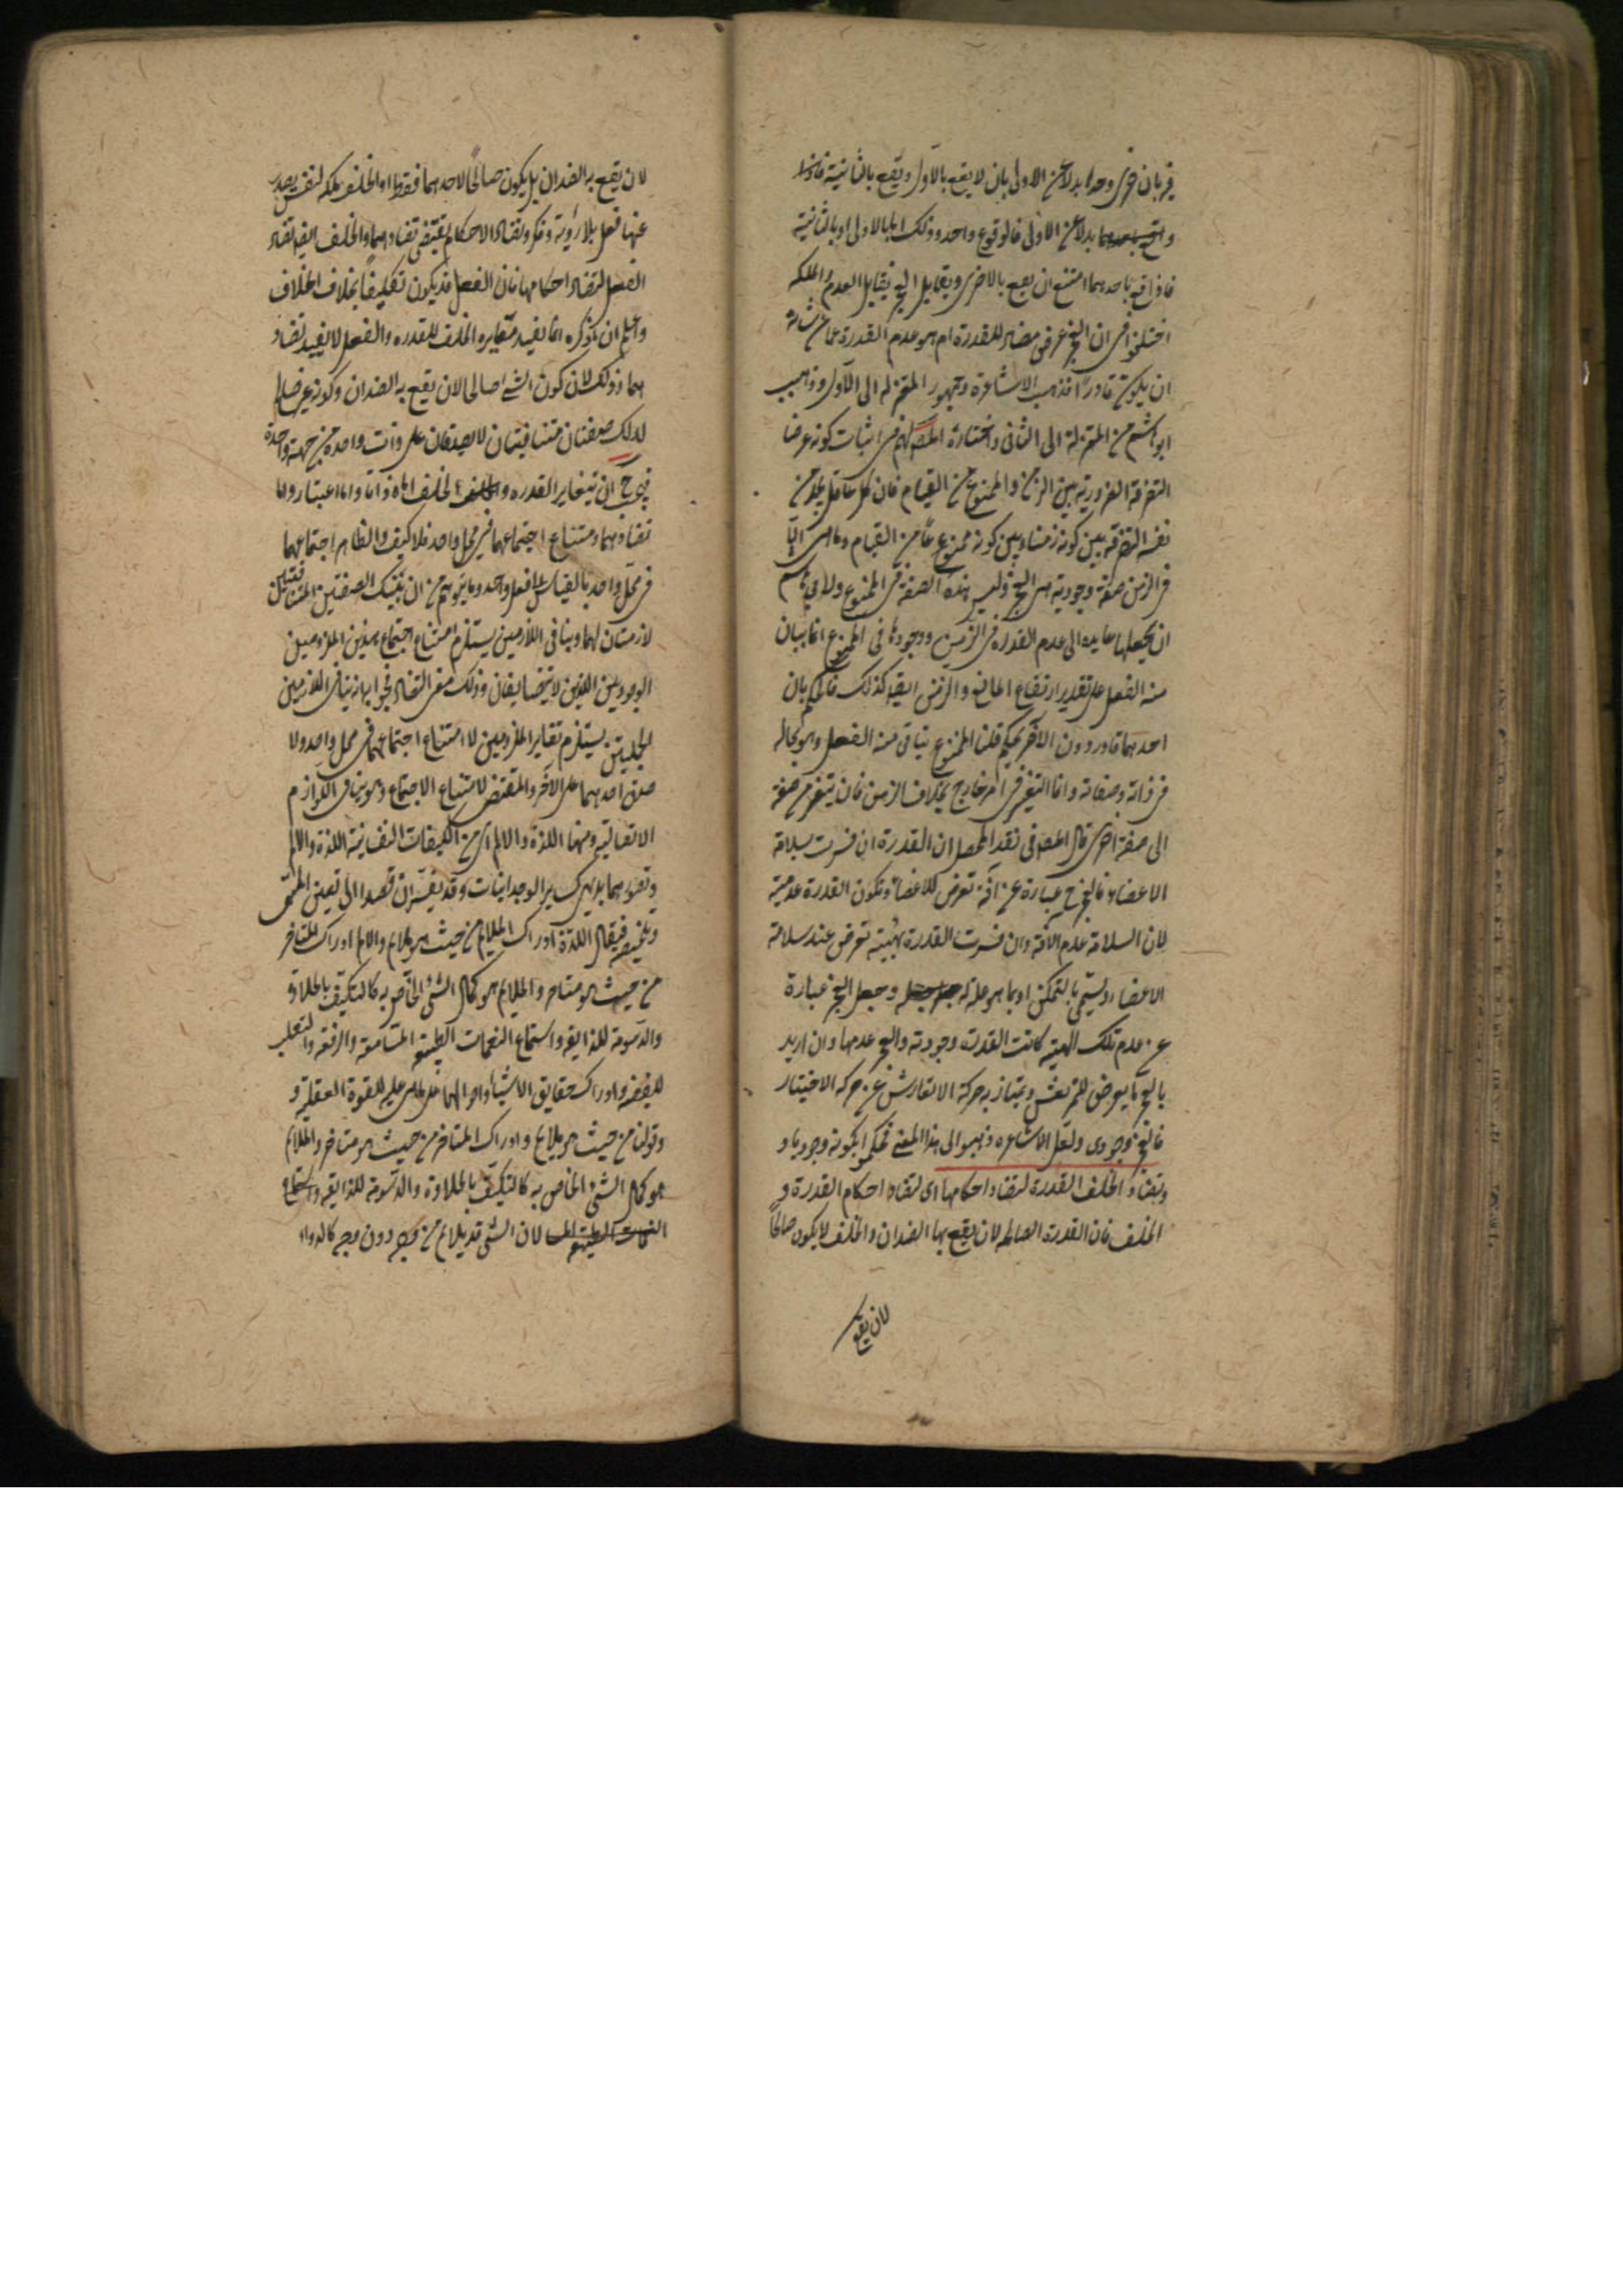 فر بان اخرى وحدها بدلا عن الاولى بان لا يقع بالاول ويقع بالثانية فاذا
بدلا عن الاولى فالوقوع واحد وذلك اما بالاولى او بالثانية
فاذا وقع باحدهما امتنع ان يقع بالاخرى ويقابل العجز تقابل العدم والملكه
اختلفوا فى ان العجز عرض مضاد للقدرة ام هو عدم القدرة عما من شانه
ان يكون قادرا فذهب الاشاعرة وجمهور المعتزله الى الاول وذهب
ابو هاشم من المعتزلة الى الثانى واختاره المصـ لهم فى اثبات كونه عرضا
التفرقة الضرورية بين الزمن والممنوع من القيام فان كل عاقل يجد من
نفسه التفرقه بين كونه زمنا وبين كونه ممنوعا عن القيام وما هى الا ان
فى الزمن صفة وجودية هى العجز وليس هذه الصفة فى الممنوع ولابى هاشم
ان يجعلها عايده الى عدم القدرة فى الزمن ووجودها فى الممنوع
منه الفعل على تقدير ارتفاع المانع والزمن ايضا كذلك فالحكم بان
احدهما قادر دون الاخر تحكم قلنا الممنوع يتاتى منه الفعل وهو بحاله
فى ذاته وصفاته وانما التغير فى امر خارج بخلاف الزمن فانه يتغير من صفة
الى صفة اخرى قال المصـ فى نقد المحصل ان القدرة ان فسرت بسلامة
الاعضاء فالعجز ح عبارة عن آفة تعرض للاعضاء وتكون القدرة عدمية
لان السلامة عدم الافة وان فسرت القدرة بهيئة تعرض عند سلامة
الاعضاء وتسمى بالتمكن او بما هو علة له وجعل العجز عبارة
عن عدم تلك الهيئة كانت القدرة وجودية والعجز عدمها وان اريد
بالعجز ما يعرض للمرتعش ويمتاز به حركة الارتعاش عن حركة الاختيار
فالعجز وجودى ولعل الاشاعره ذهبوا الى هذا المعنى فحكموا بكونه وجوديا و
وتضاد الخلف القدرة لتضاد احكامها اى لتضاد احكام القدرة و
الخلف فان القدرة الصالحة لان يقع بها الضدان والخلف لا يكون صالحا
لان يقع
لان يقع به الضدان بل يكون صالحا لاحدهما فقط اذ الخلف ملكه لنفس يصدر
عنها فعل بلا روية وفكر وتضاد الاحكام يقتضى تضادهما والخلف ايضا تضاد
الفعل لتضاد احكامها فان الفعل قد يكون تكليفا بخلاف الخلاف
واعلم ان ما ذكره انما يفيد مغايره الخلف للقدره والفعل لا يفيد تضاد
هما وذلك لان كون الشئ صالحا لان يقع به الضدان وكونه غير صالح
لذلك صفتان متنافيتان لا يصدقان على ذات واحده من جهة واحدة
فيجب ان يتغاير القدره والخلف اما ذاتا واما اعتبارا واما
تضادهما وامتناع اجتماعهما فى محل واحد فلا كيف والظاهر اجتماعهما
فى محل واحد بالقياس الى فعل واحد وما يتوهم من ان تينك الصفتين المتنافيتين
لازمتان لهما وتنافى اللازمين يستلزم امتناع اجتماع هذين الملزومين
الوجوديين اللذين لا يتضايفان وذلك معنى التضاد فجوابه ان تنافى اللازمين
يستلزم تغاير الملزومين لا امتناع اجتماعهما فى محل واحد ولا
صدق احدهما على الاخر والمقتضى لامتناع الاجتماع هو تنافى اللوازم
ومنها اللذة والالم اى من الكيفيات النفسانية اللذة والالم
وتصورهما بديهى كساير الوجدانيات وقد يفسران قصدا الى تعيين المسمى
وتلخيصه فيقال اللذة ادراك الملايم من حيث هو ملايم والالم ادراك المتنافر
من حيث هو متنافر والملايم هو كمال الشئ الخاص به كالتكيف بالحلاوة
والدسومة للذايقه واستماع النغمات الطيبة المتناسبة والرفعه والتغلب
للغضبيه وادراك حقايق الاشياء واحوالها على ما هى عليه للقوة العقلية و
وقولنا من حيث هو ملايم وادراك المتنافر من حيث هو متنافر والملايم
هو كمال الشئ الخاص به كالتكيف بالحلاوة والدسومة للذايقه واستماع
لان الشئ قد يلايم من وجه دون وجه كالدواء